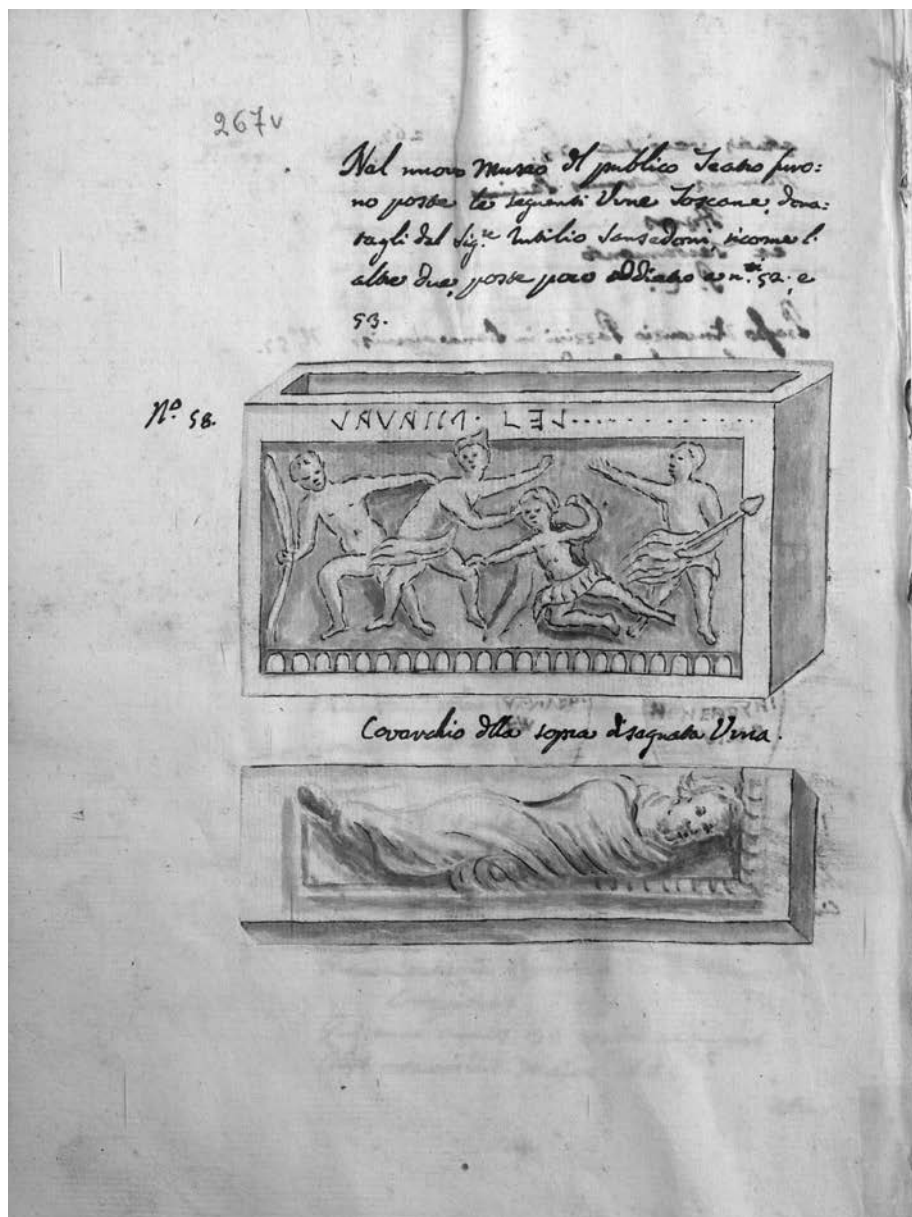 267v
Nel nuovo Museo del publico Teatro furo:
no poste le seguenti Urne Toscane, dona:
tagli dal Sig.re Sansedoni, sicome l'
altre due, poste poco addietro a n.i 52. e
53.
Nº. 58.
Covarchio della sopra disegnata Urna.